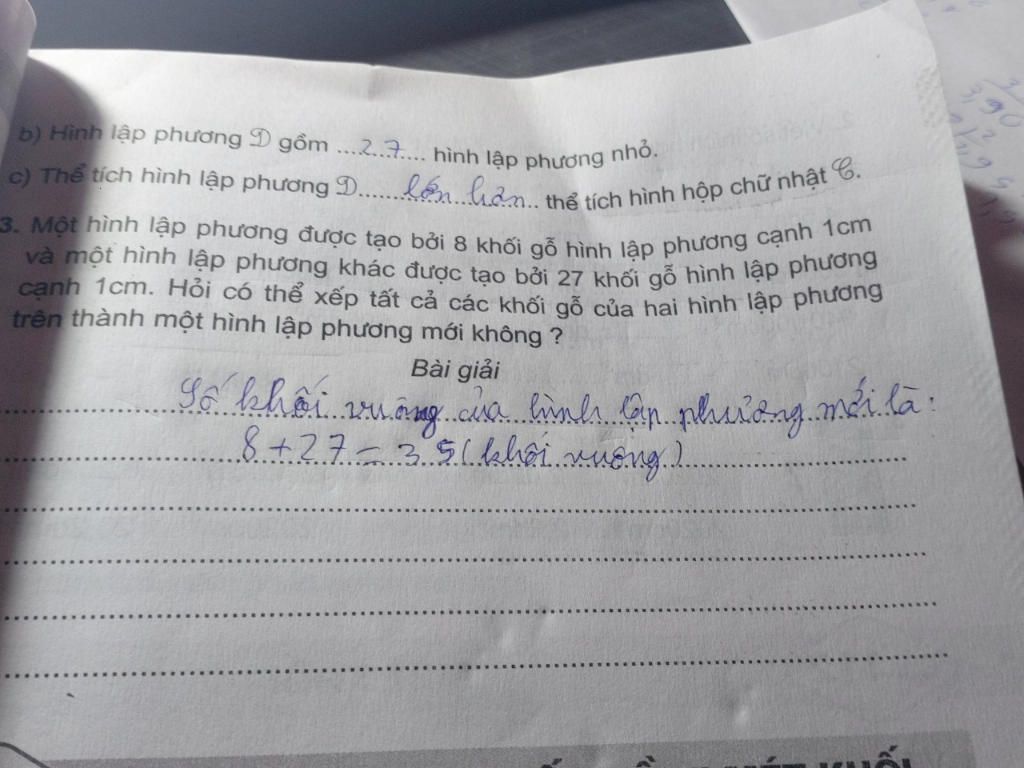 b) Hình lập phương D gồm ....27.... hình lập phương nhỏ.
c) Thể tích hình lập phương D..... lớn hơn.. thể tích hình hộp chữ nhật C.
3. Một hình lập phương được tạo bởi 8 khối gỗ hình lập phương cạnh 1cm
và một hình lập phương khác được tạo bởi 27 khối gỗ hình lập phương
cạnh 1cm. Hỏi có thể xếp tất cả các khối gỗ của hai hình lập phương
trên thành một hình lập phương mới không ?
Bài giải
Số khối vuông của hình lập phương mới là:
8 + 27 = 35 (khối vuông)